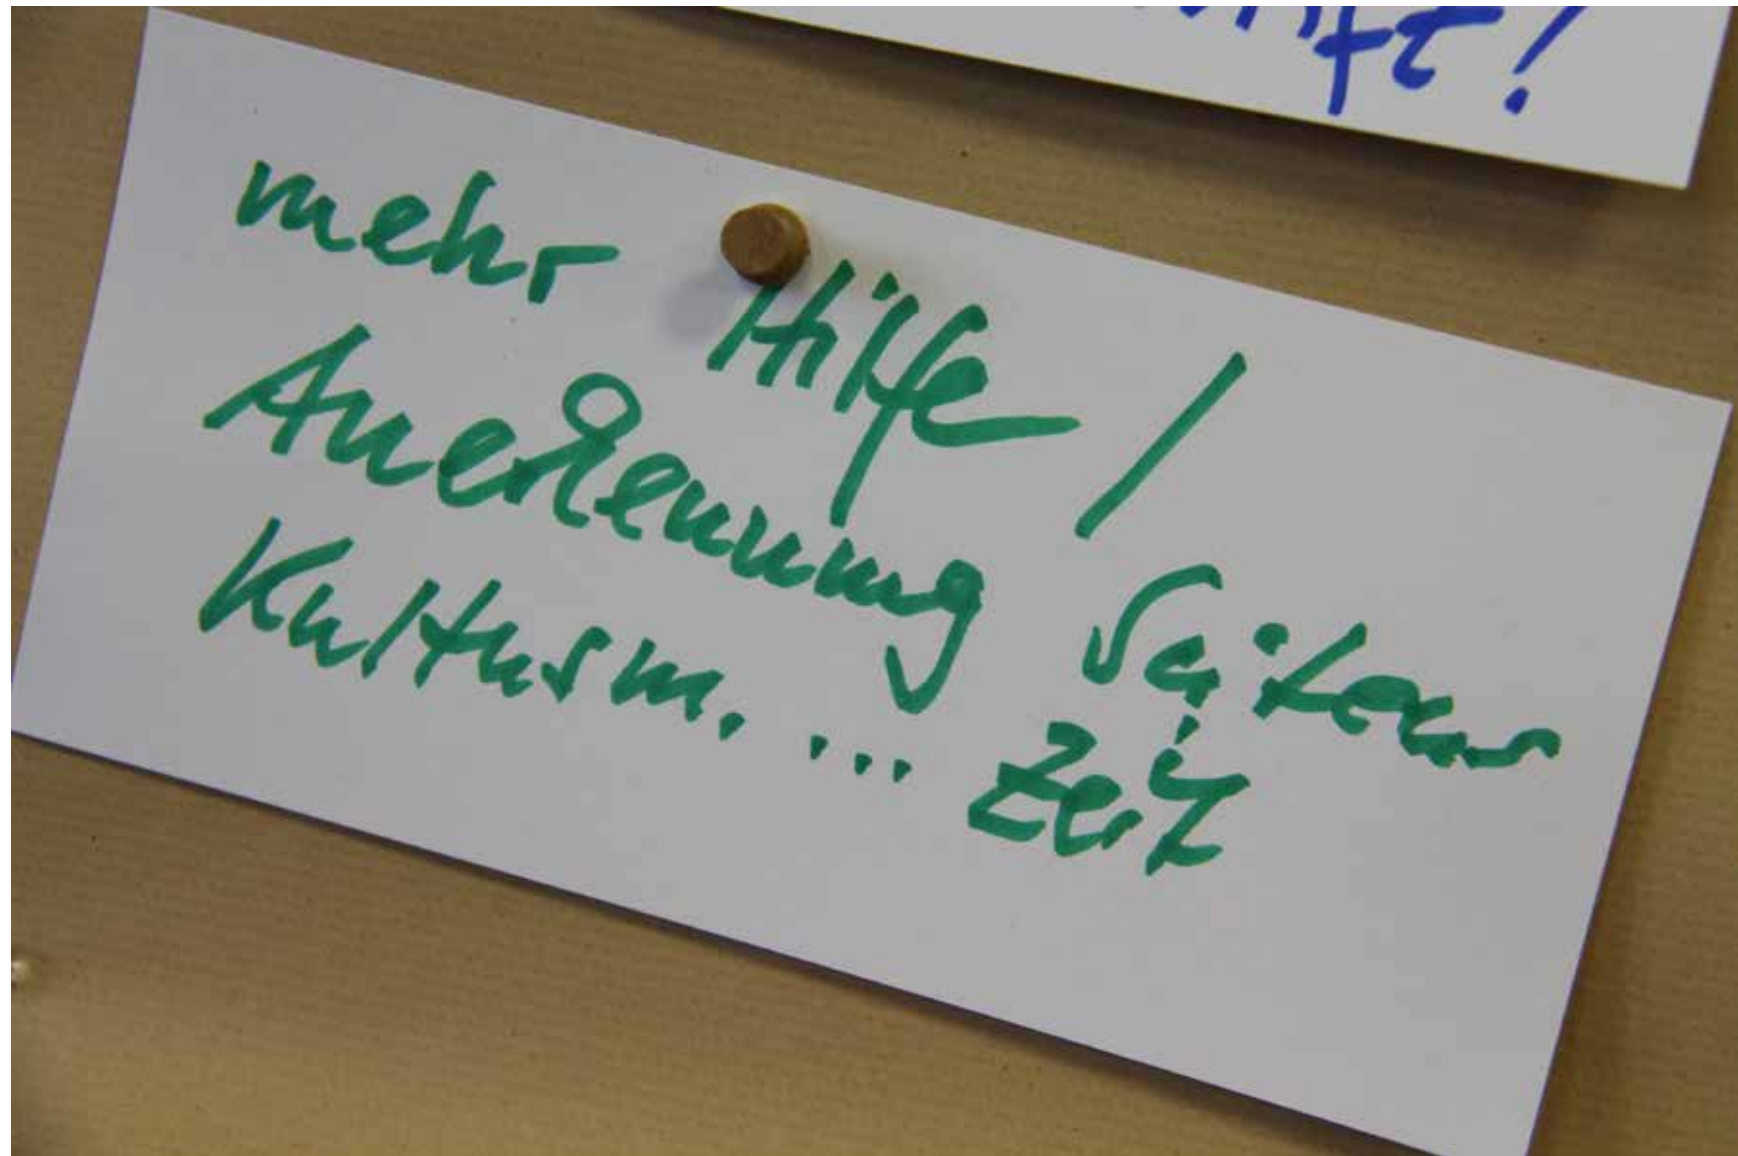 mehr Hilfe /
Anerkennung seitens
Kultusm. ... Zeit